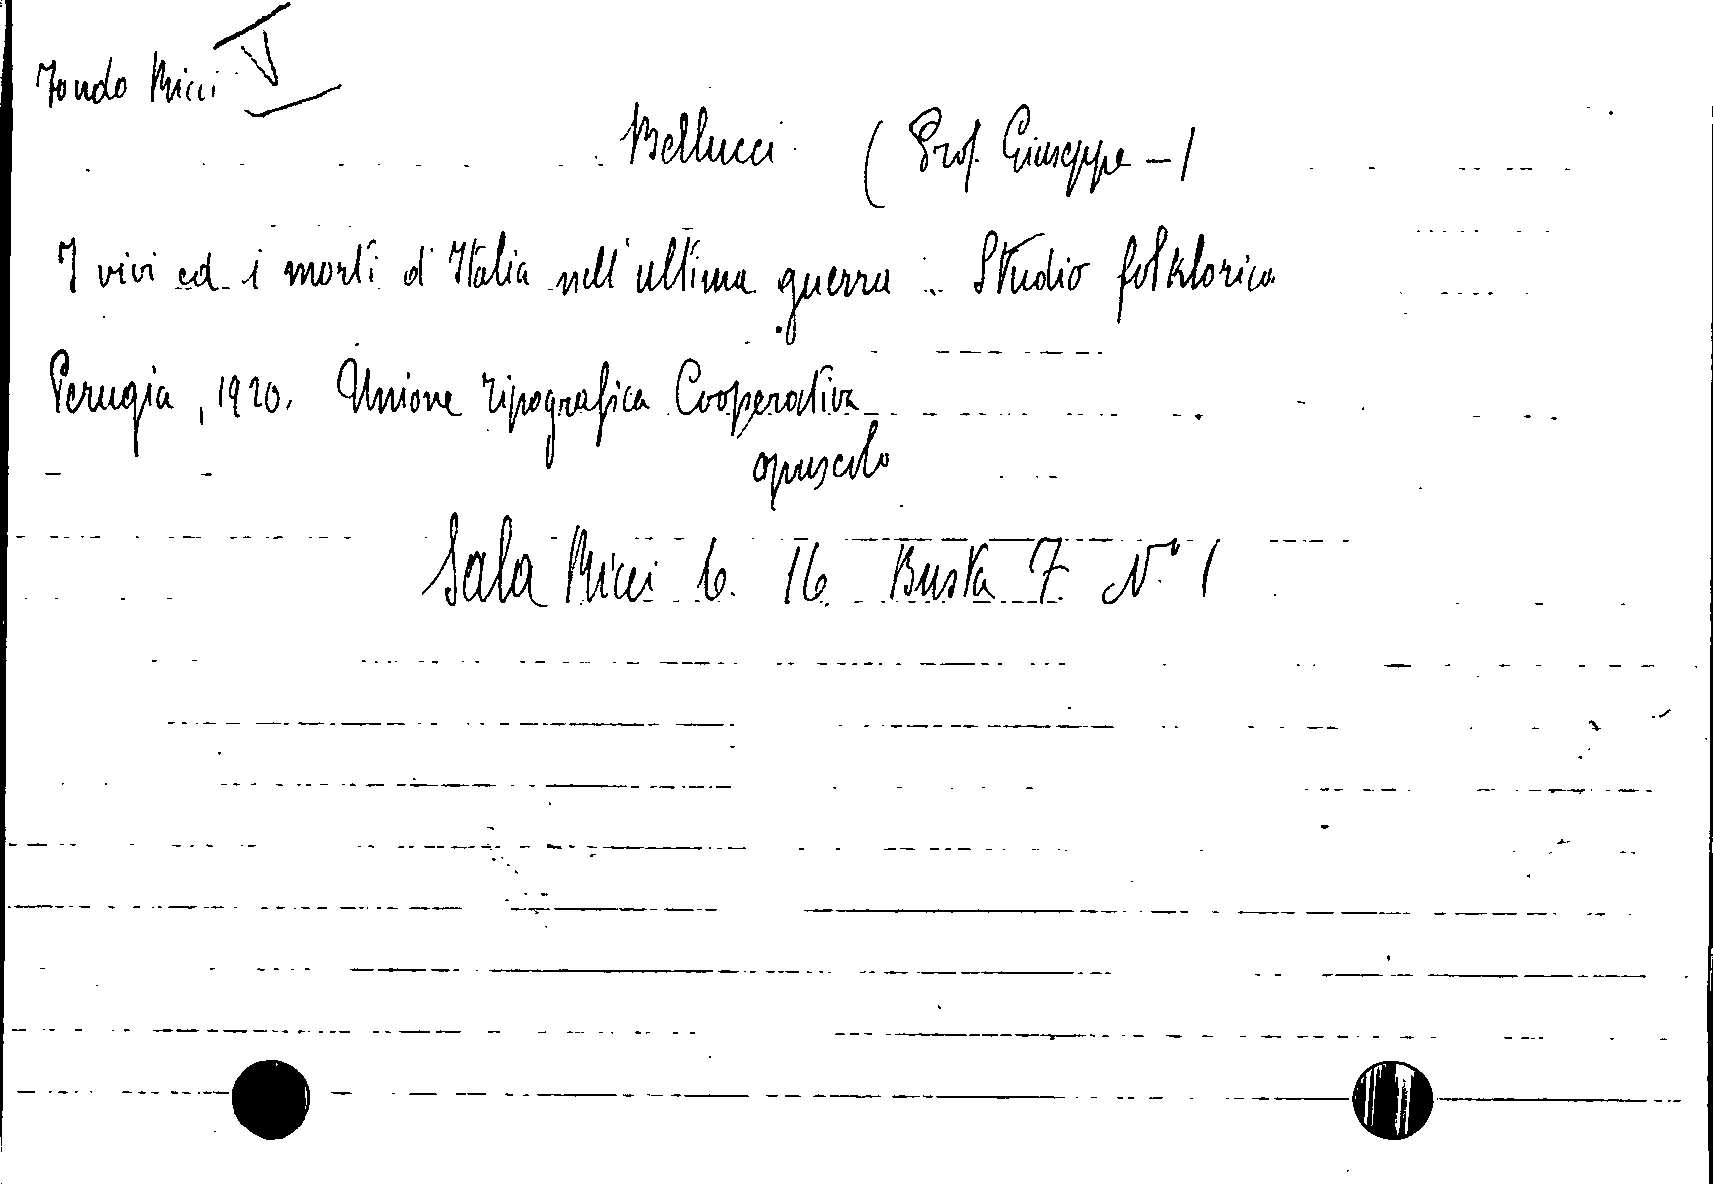 Fondo Ricci V
Bellucci (Prof. Giuseppe -)
I vivi ed i morti d'Italia nell'ultima guerra. Studio folklorico
Perugia, 1920. Unione Tipografica Cooperativa
opuscolo
Sala Ricci 6. 16 Busta 7 N.° 1